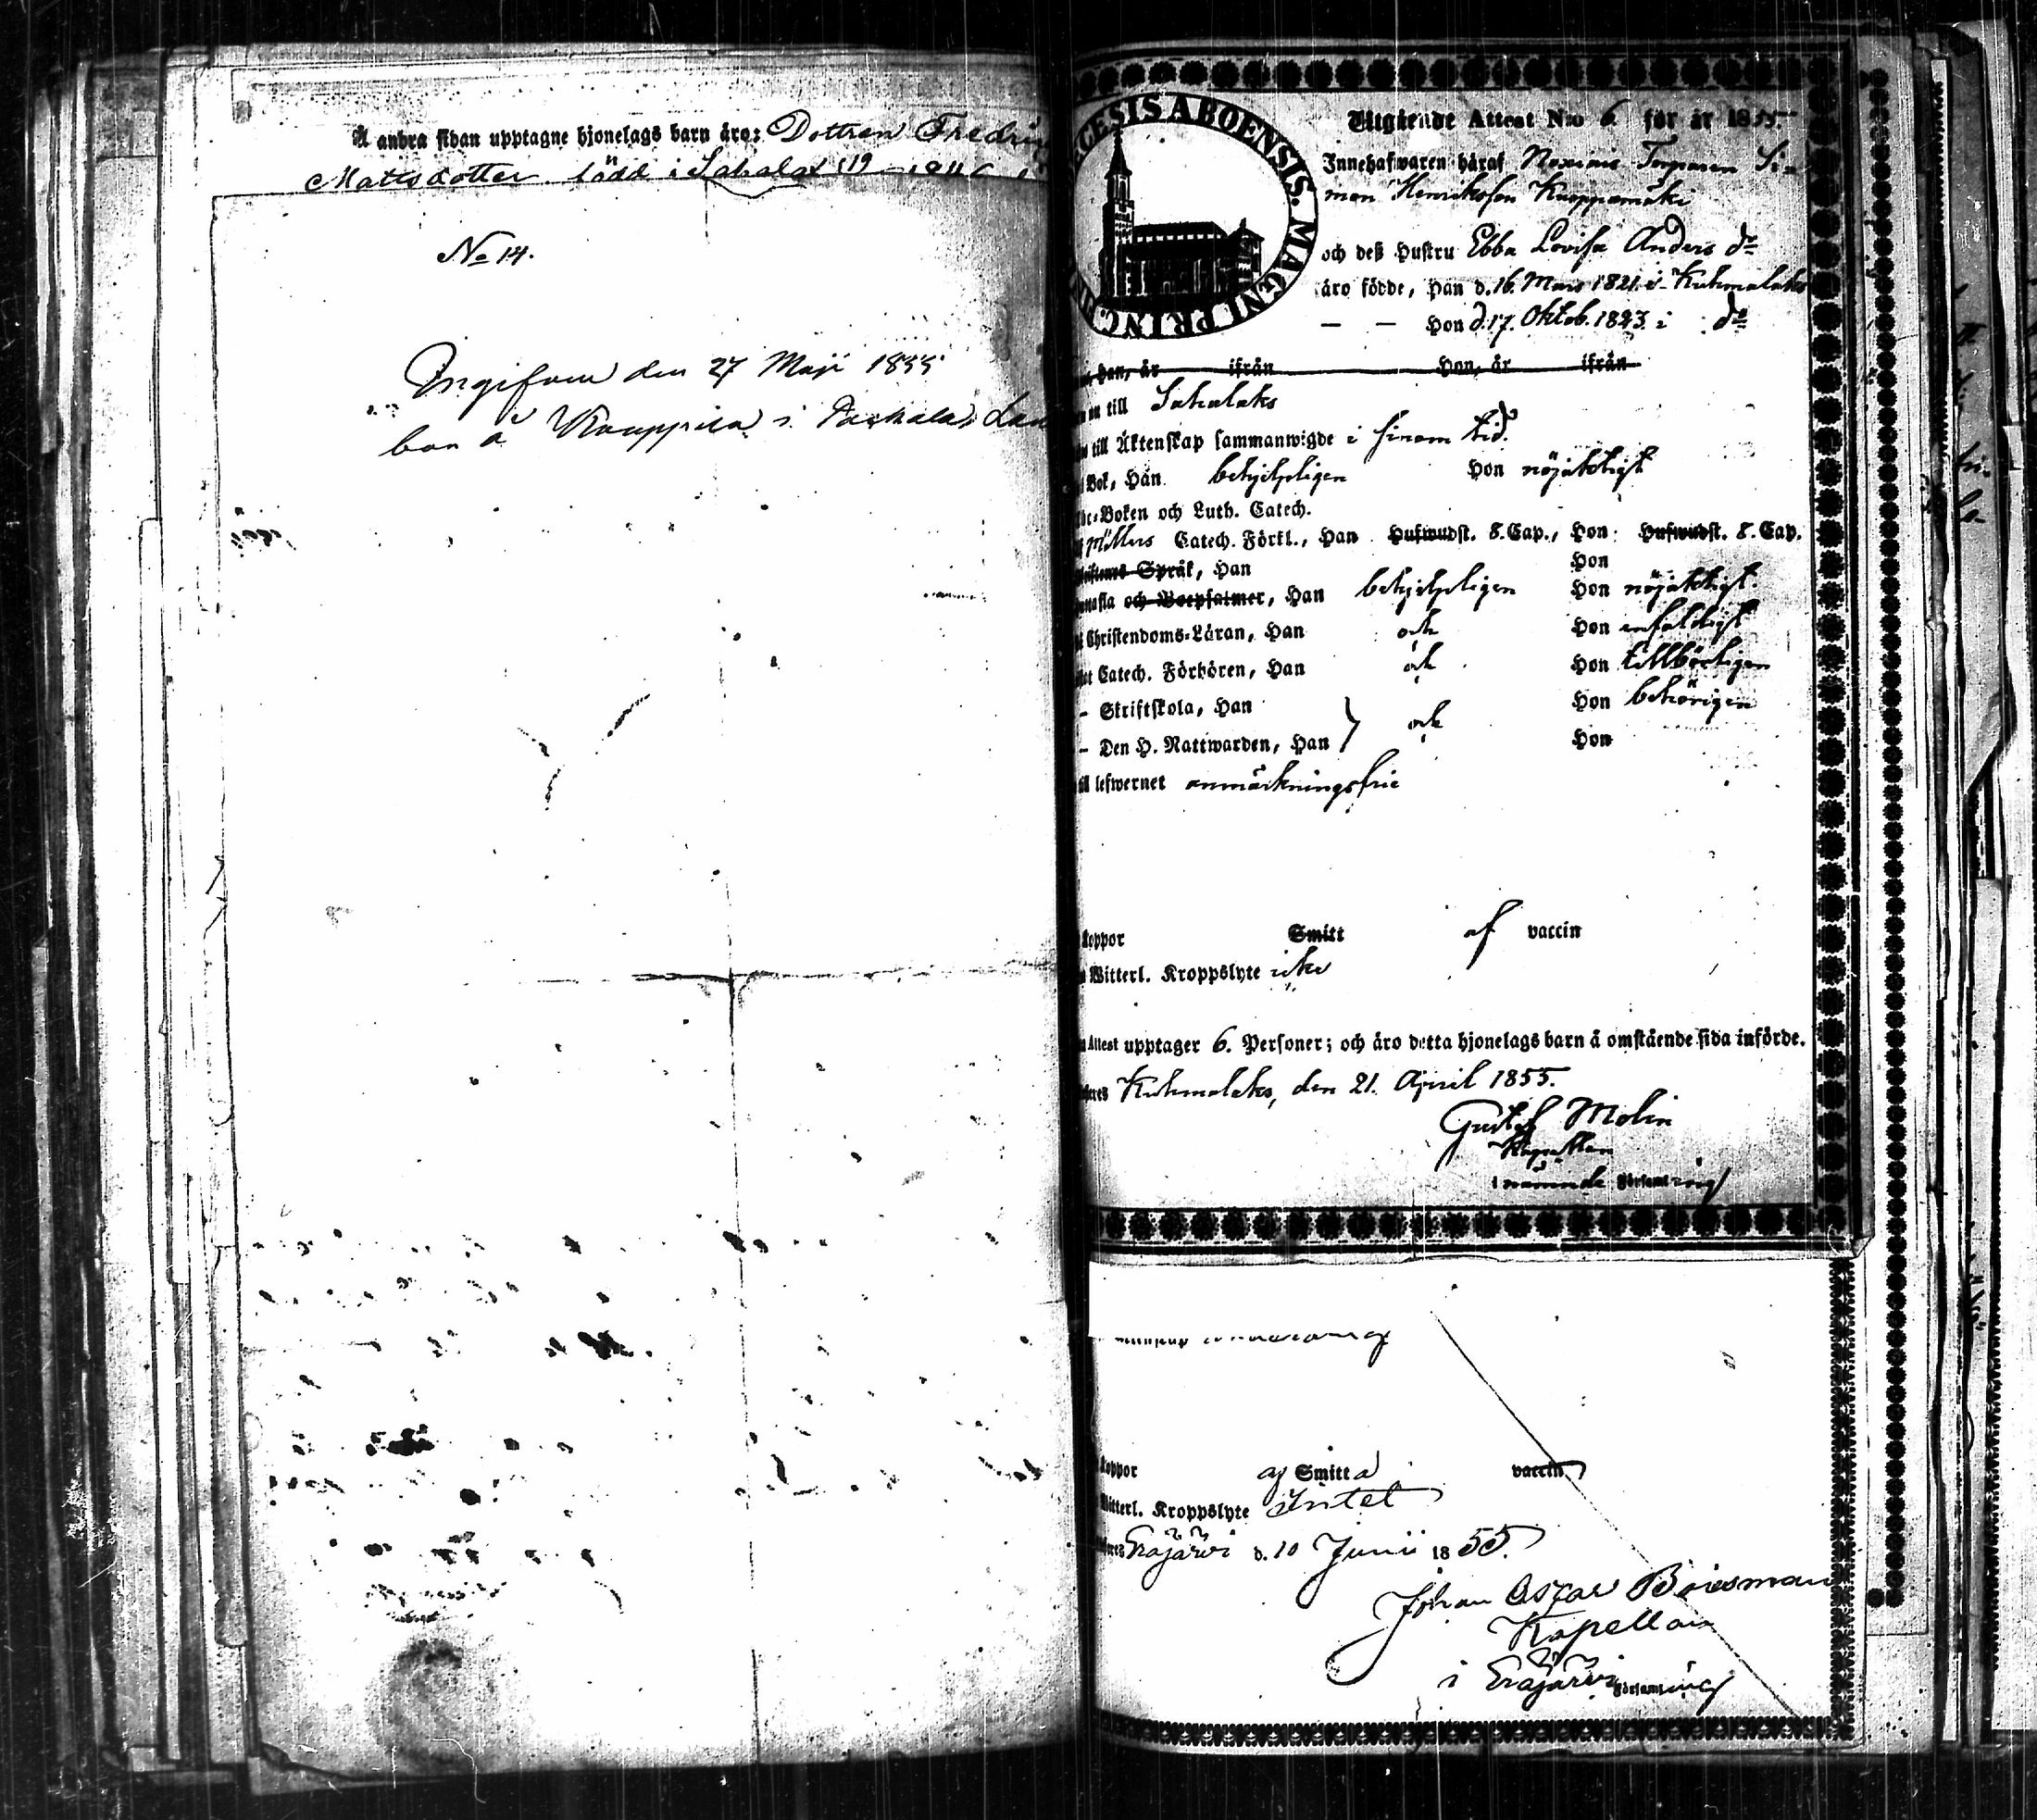 Å andra sidan upptagne hjonelags barn äro: Dottren Fredri
Mattsdotter född i Sahalax
No 14.
Ingifven den 27 Maji 1855
bon å Kauppila i
CESIS ABOENSIS. MAGNI PRINC.
Utgående Attest N:o 6. för år 1855.
Innehafwaren häraf Torparen Si-
mon Henriksson Kuoppamäki
och deß Hustru Ebba Lovisa Anders dr
äro födde, Han d. 16 Mars 1821 i Kuhmalaks
— — Hon d. 17 Oktob. 1823 i do
Han, år ifrån Hon, år ifrån
till Sahalaks
till Äktenskap sammanwigde i sinom tid.
Bok, Han behjelpligen Hon nöjaktigt
Boken och Luth. Catech.
Catech. Förkl., Han Hufwudst. 8. Cap., Hon Hufwudst. 8. Cap.
Språk, Han Hon
och Botpsalmer, Han behjelpligen Hon nöjaktigt
Christendoms-Läran, Han och Hon enfaldigt
Catech. Förhören, Han och Hon tillbörligen
- Skriftskola, Han Hon behörigen
- Den H. Nattwarden, Han och Hon
till lefwernet anmärkningsfrie
koppor Smitt af vaccin
Witterl. Kroppslyte icke
Attest upptager 6. Personer; och äro detta hjonelags barn å omstående sida införde.
Kuhmalaks, den 21. April 1855.
Gustaf Molin
Kapellan
i nämnde Församling
koppor af Smitta vaccin
Witterl. Kroppslyte Intet
Eräjärvi d. 10 Junii 1855.
Johan Oscar Boisman
Kapellan
i Eräjärvi Församling